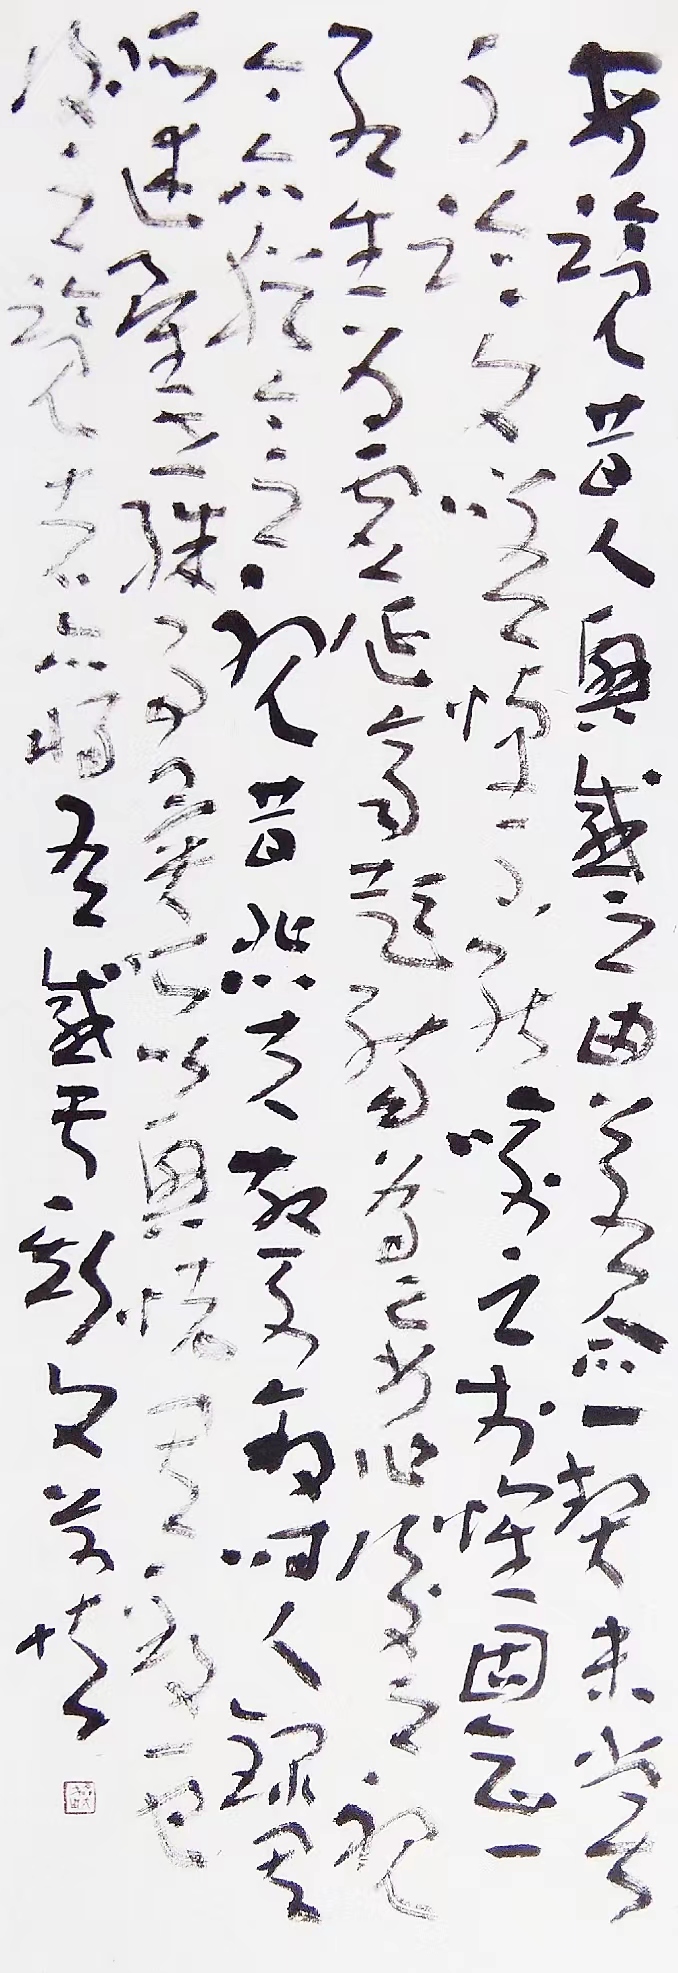 每覽昔人興感之由若合一契未嘗
不臨文嗟悼不能喻之於懷固知一
死生為虛誕齊彭殤為妄作後之視
今亦猶今之視昔悲夫故列敘時人錄其
所述雖世殊事異所以興懷其致一也
後之覽者亦將有感於斯文